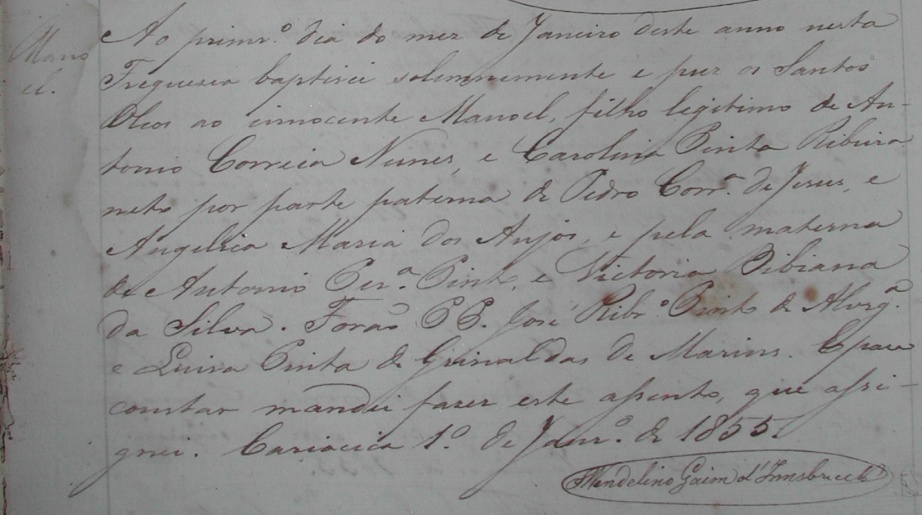 Mano
el.
Ao primr.º dia do mez de Janeiro deste anno nesta
Freguesia baptisei solemnemente e puz os Santos
Oleos ao innocente Manoel, filho legitimo de An-
tonio Correia Nunes, e Carolina Pinta Ribeira
neto por parte paterna de Pedro Corr.ª de Jesus, e
Angelica Maria dos Anjos, e pela materna
de Antonio Per.ª Pinto, e Victoria Bibiana
da Silva. Forão PP. José Ribr.º Pinto de
e Luiza Pinta de Grinaldas de Marins. E para
constar mandei fazer este assento, que assi-
gnei. Cariacica 1.º de Janr.º de 1855.
Wendelino Gaim d'Innsbruck